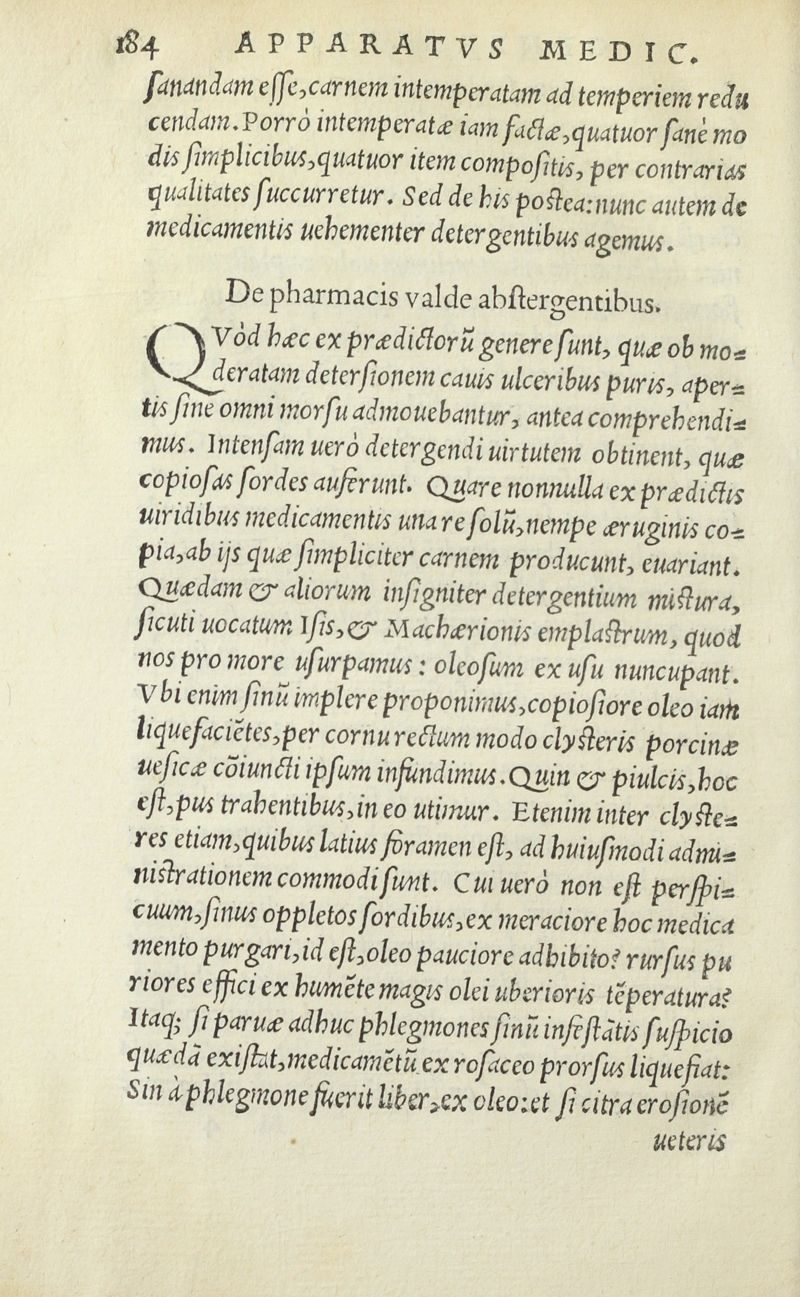 184 APPARATVS MEDIC.
ſanandam eſſe, carnem intemperatam ad temperiem redu
cendam. Porrò intemperatæ iam factæ, quatuor ſanè mo
dis ſimplicibus, quatuor item compoſitis, per contrarias
qualitates ſuccurretur. Sed de his poſtea: nunc autem de
medicamentis uehementer detergentibus agemus.
De pharmacis valde abſtergentibus.
QVòd hæc ex prædictorũ genere ſunt, quæ ob mo=
deratam deterſionem cauis ulceribus puris, aper=
tis ſine omni morſu admouebantur, antea comprehendi=
mus. Intenſam uerò detergendi uirtutem obtinent, quæ
copioſas ſordes auferunt. Quare nonnulla ex prædictis
uiridibus medicamentis una re ſolũ, nempe æruginis co=
pia, ab ijs quæ ſimpliciter carnem producunt, euariant.
Quædam & aliorum inſigniter detergentium miſtura,
ſicuti uocatum Iſis, & Machærionis emplaſtrum, quod
nos pro more uſurpamus: oleoſum ex uſu nuncupant.
Vbi enim ſinũ implere proponimus, copioſiore oleo iam
liquefaciẽtes, per cornu rectum modo clyſteris porcinæ
ueſicæ cõiuncti ipſum infundimus. Quin & piulcis, hoc
eſt, pus trahentibus, in eo utimur. Etenim inter clyſte=
res etiam, quibus latius foramen eſt, ad huiuſmodi admi=
niſtrationem commodi ſunt. Cui uerò non eſt perſpi=
cuum, ſinus oppletos ſordibus, ex meraciore hoc medica
mento purgari, id eſt, oleo pauciore adhibito? rurſus pu
riores effici ex humẽte magis olei uberioris tẽperatura?
Itaq; ſi paruæ adhuc phlegmones ſinũ infeſtãtis ſuſpicio
quædã exiſtat, medicamẽtũ ex roſaceo prorſus liquefiat:
Sin à phlegmone fuerit liber, ex oleo: et ſi citra eroſionẽ
ueteris